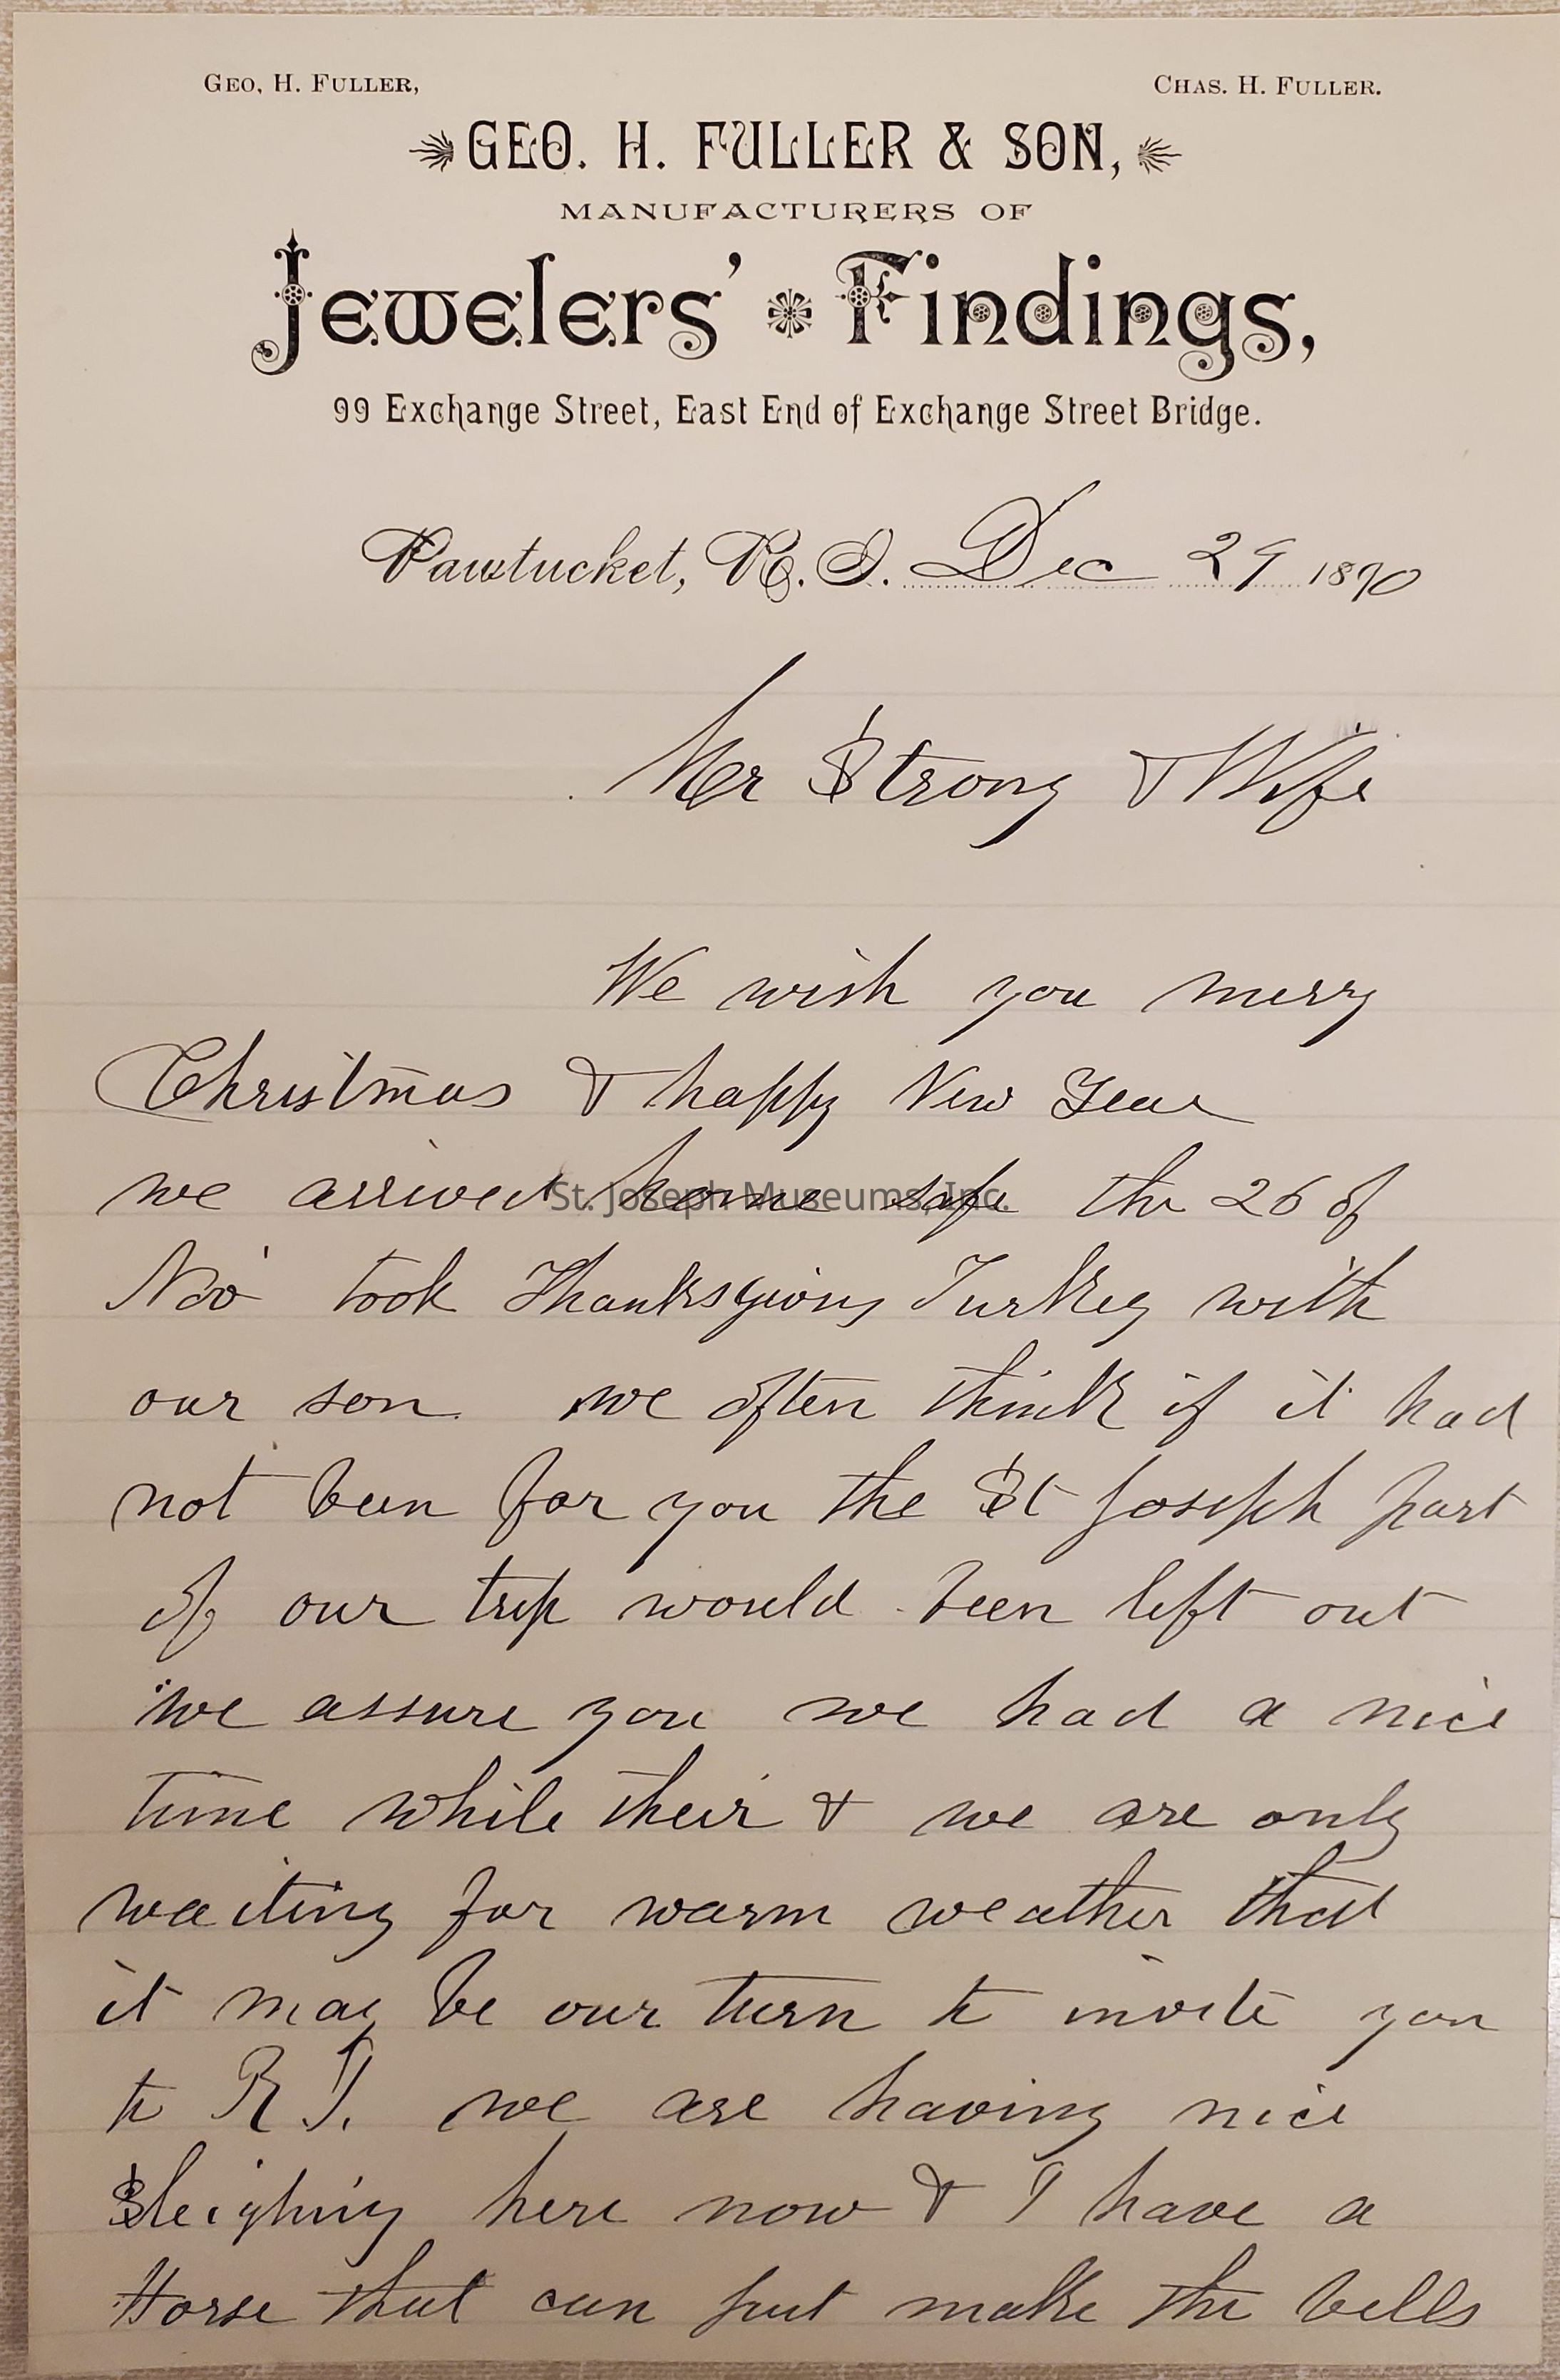 GEO. H. FULLER, CHAS. H. FULLER.
GEO. H. FULLER & SON,
MANUFACTURERS OF
Jewelers' Findings,
99 Exchange Street, East End of Exchange Street Bridge.
Pawtucket, R. I. Dec 29 1890
Mr Strong & Wife
We wish you merry
Christmas & happy New Year
we arrived home safe the 26 of
Nov took Thanksgiving Turkey with
our son. we often think if it had
not been for you the St Joseph part
of our trip would been left out
we assure you we had a nice
time while their & we are only
waiting for warm weather that
it may be our turn to invite you
to R I. we are having nice
Sleighing here now & I have a
Horse that can just make the bells
St. Joseph Museums, Inc.